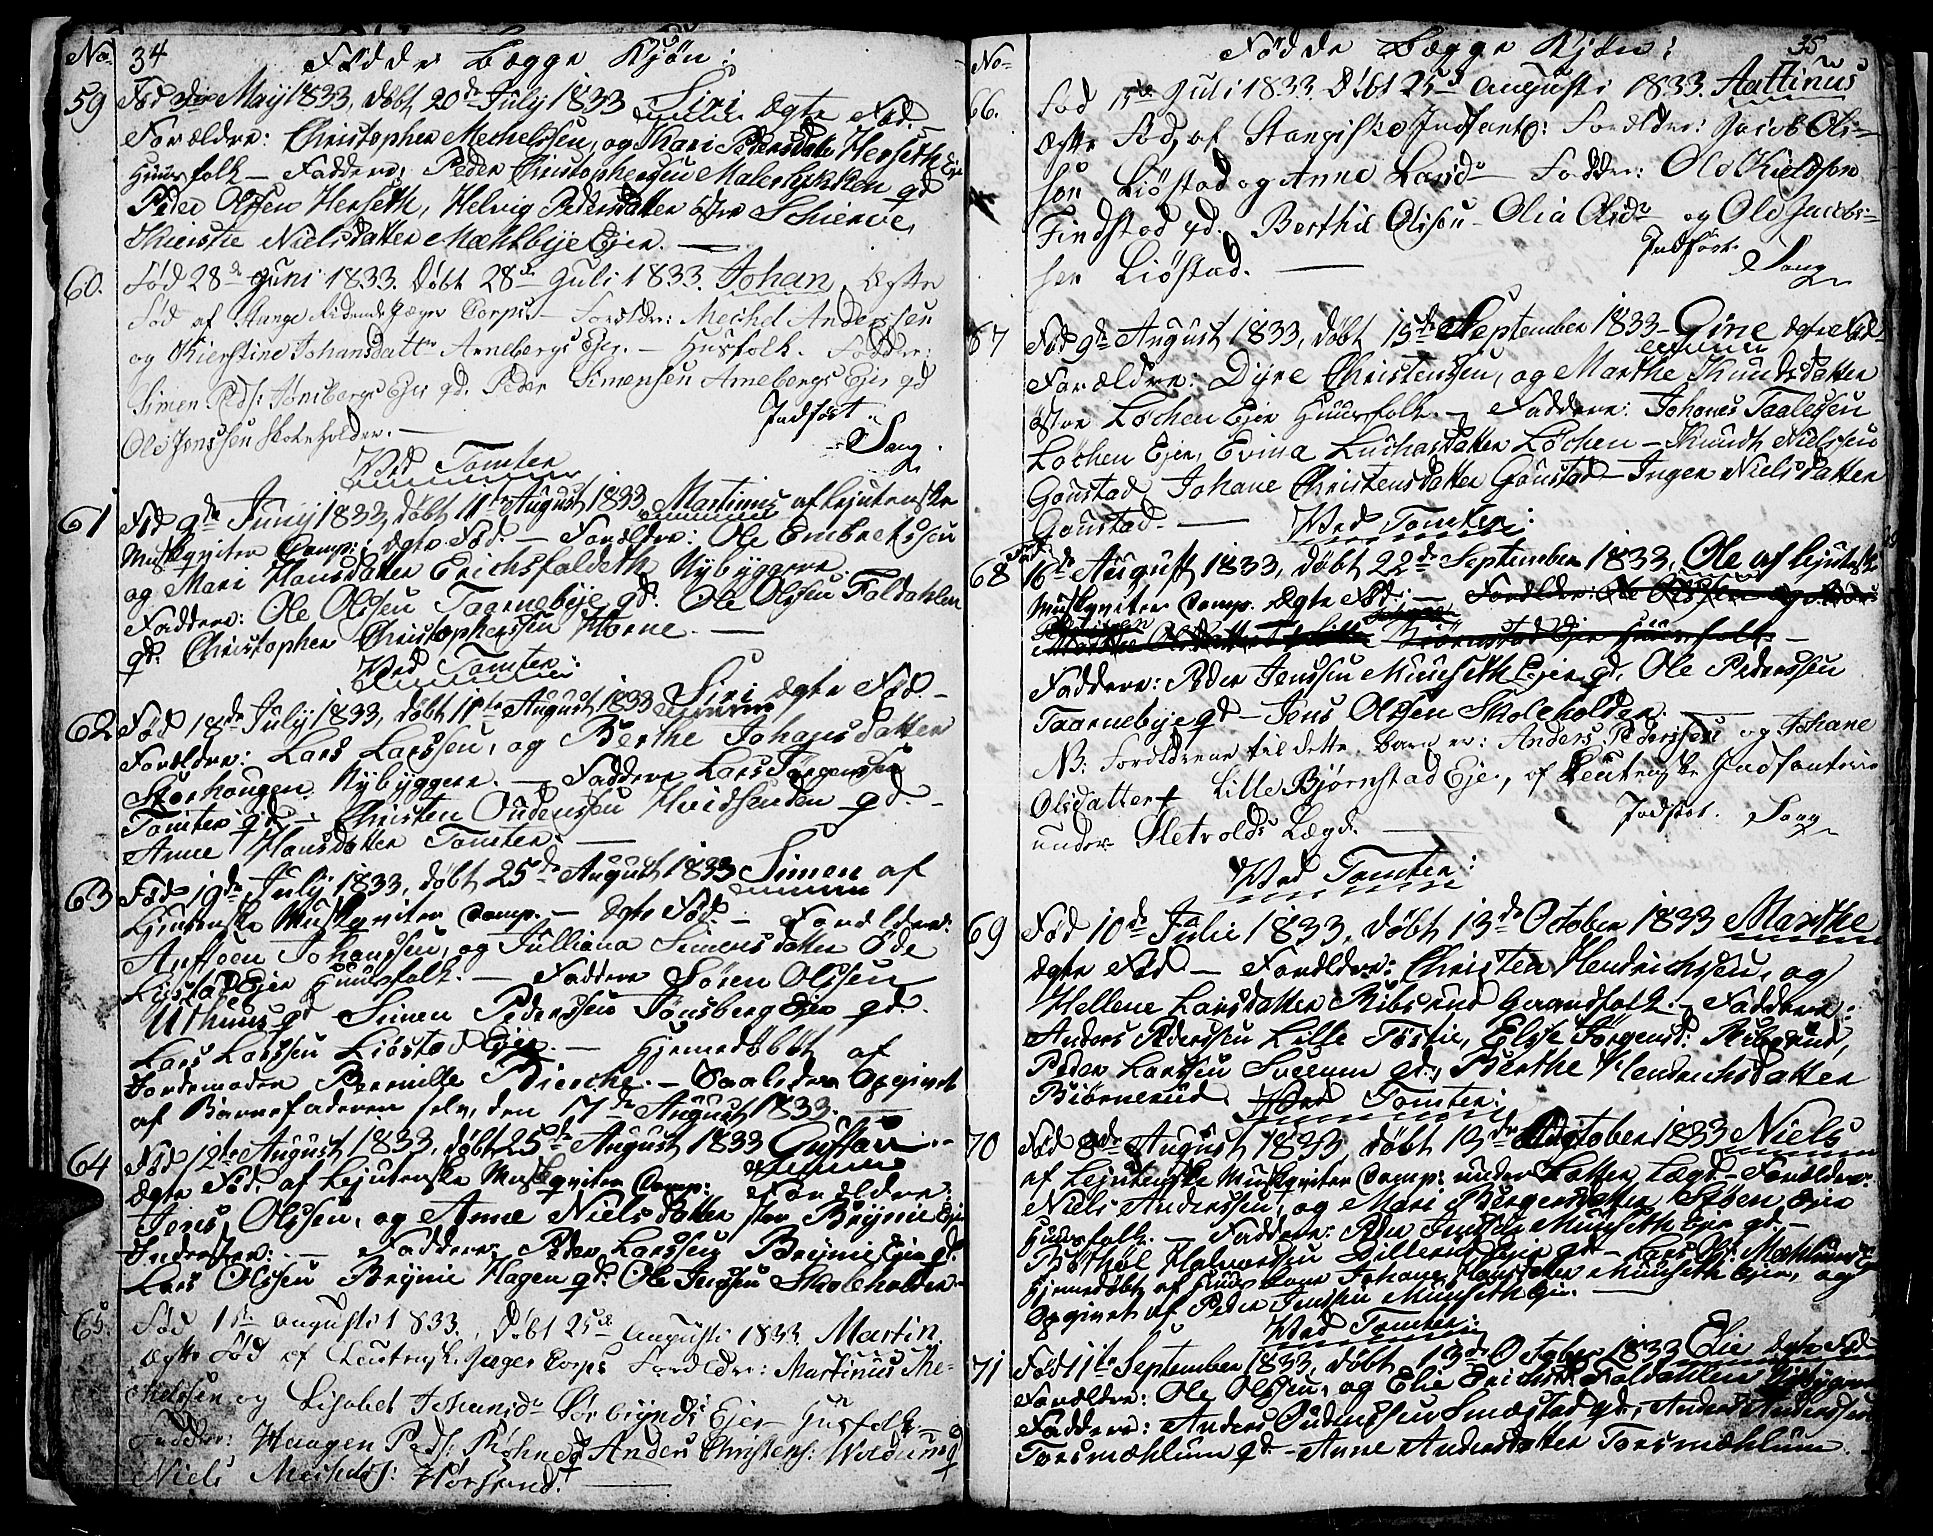 No. 34 Fødde Begge Kjøn:
59 Fød May 1833, døbt 20de July 1833 Siri Ægte Fød.
Forældre: Christopher Mechelssen, og Kari Pedersdatter Herseth Eje
Huusfolk – Faddere: Peder Christophersen Malerlykken gd
Peder Olssen Herseth, Helvig Pedersdatter østre Schierve,
Kierstie Nielsdatter Mæhlbye Ejer. —
60. Fød 28de Juni 1833. Døbt 28de Juli 1833. Johan Ægte
Fød af Stange Ridende Jæger Corps. – Foreldre: Mechel Anderssen
og Kierstine Johansdattr Arnebergs Ejer. – Husfolk. Faddere:
Simen Peds: Jønsbergs Ejer gd. Peder Simensen Arnebergs Ejer gd
Ole Jenssen Skoleholder. —
Indført.
Sang
Ved Tomter
61 Fød 9de Juny 1833, døbt 11te August 1833 Martinus af Lejutenske
Musqviter Comp: Ægte Fød. – Forældre: Ole Embretssen
og Mari Hansdatter Erichsfaldeth Nybyggere.
Faddere: Ole Olssen Taarnebye gd. Ole Olssen Faldahlen
gd. Christopher Christophersen Horne. —
Ved Tomter:
62 Fød 18de July 1833, døbt 11te August 1833 Siri Ægte Fød –
Forældre: Lars Larssen, og Berthe Johansdatter
Storhaugen Nybyggere. – Faddere Lars Jørgenssen
Tomter gd – Christen Oudenssen Hvidsanden gd. –
Anne Hansdatter Tomter. —
63 Fød 19de July 1833, døbt 25de August 1833 Simen af
Lejutenske Musqviter Comp. – Ægte Fød – Forældre:
Anfoen Johanssen, og Julliana Simensdatter Øde
Lystad Ejer Huusfolk. – Faddere Søren Olssen
Uthuus gd Simen Pederssen Jønsberg Ejer gd.
Lars Larssen Liøstad Ejer. – Hjemedøbt af
Jordemoder Pernille Biercke. – Saaledes Opgivet
af Barnefaderen selv, den 17de August 1833. —
64 Fød 12te August 1833, døbt 25de August 1833 Gustav –
Ægte Fød, af Lejutenske Musqviter Comp: Forældre:
Jens Olssen, og Anne Nielsdatter stor Brynie Eje
Inderster. – Faddere Peder Larssen Brynie Ejer gd
Lars Olssen Brynie Hagen gd. Ole Jenssen Skoleholder –
65. Fød 1ste Augusti 1833. Døbt 25de Augusti 1833. Martin
Ægte Fød af Jæger Corps Foreldre: Martinus Me-
chelssen og Lisabet Johansdr Sørbrynds Ejer Husfolk –
Faddere: Haagen Peds: Røhne gd Anders Christens: Woldum gd
Niels Mechels: Hørsand. —
No. Fødde Begge Kjøn: 35
66. Fød 15de Juli 1833. Døbt 25de Augusti 1833. Aattinus
Ægte Fød, af Stangiske Infant: Foreldre: Jacob Ole-
sen Liøstad og Anne Larsdr – Faddere: Ole Kieldsen
Findstad gd. Berthil Olssen – Olia Olsdr og Ole Jacob-
sen Liøstad. —
Indført.
Sang
67 Fød 9de August 1833, døbt 15de September 1833 – Gine Ægte Fød –
Forældre: Dyre Christenssen, og Marthe Knudsdatter
østre Løchen Ejer Huusfolk. – Faddere: Johanes Taalessen
Løchen Ejer, Evina Luchasdatter Løchen – Knudt Nielssen
Goustad Johane Christensdatter Goustad – Inger Nielsdatter
Goustad. —
Ved Tomter:
68 Fød 16de August 1833, døbt 22de September 1833, Ole af Lejutenske
Musqviter Comp. Ægte Fød. –
Faddere: Peder Jenssen Muuseth Ejer gd. Ole Pederssen
Taarnebye gd – Jens Olssen Skoleholder. —
NB: Foreldrene til dette Barn er: Anders Pederssen og Johane
Olsdatter Lille Bjørnstad Ejer, af Leutenske Infanterie
under Sletvolds Lægd. —
Indført. Sang
Ved Tomter:
69 Fød 10de Julie 1833, døbt 13de October 1833 Marthe
Ægte Fød – Forældre: Christen Hendrichssen, og
Hellene Larsdatter Ribsrud Gaardfolk – Faddere:
Anders Pederssen Lille Tøstie, Else Jørgensd: Ribsrud,
Peder Larssen Sveeum gd., Berthe Hendrichsdatter
Biørnerud.
Ved Tomter:
70 Fød 8de August 1833, døbt 13de October 1833 Niels
af Lejutenske Musqviter Comp: under Lægd – Forældre:
Niels Anderssen, og Mari Børgersdatter Ejer
Huusfolk. – Faddere: Peder Jenssen Muuseth Ejer gd. –
Halvorssen Dillerud Ejer gd – Lars Ols: Mæhlum
Hjemedøbt af Johane Hansdatter Muuseth Ejer, og
Opgivet af Peder Jenssen Muuseth Ejer. —
Ved Tomter:
71 Fød 11te September 1833, døbt 13de October 1833 Elie Ægte Fød
Forældre: Ole Olssen, og Elie Erichsd: Faldahlen Nybyggere
Faddere: Anders Oudenssen Smæstad gd, Anders Anderssen
Torsmæhlum gd – Anne Andersdatter Torsmæhlum